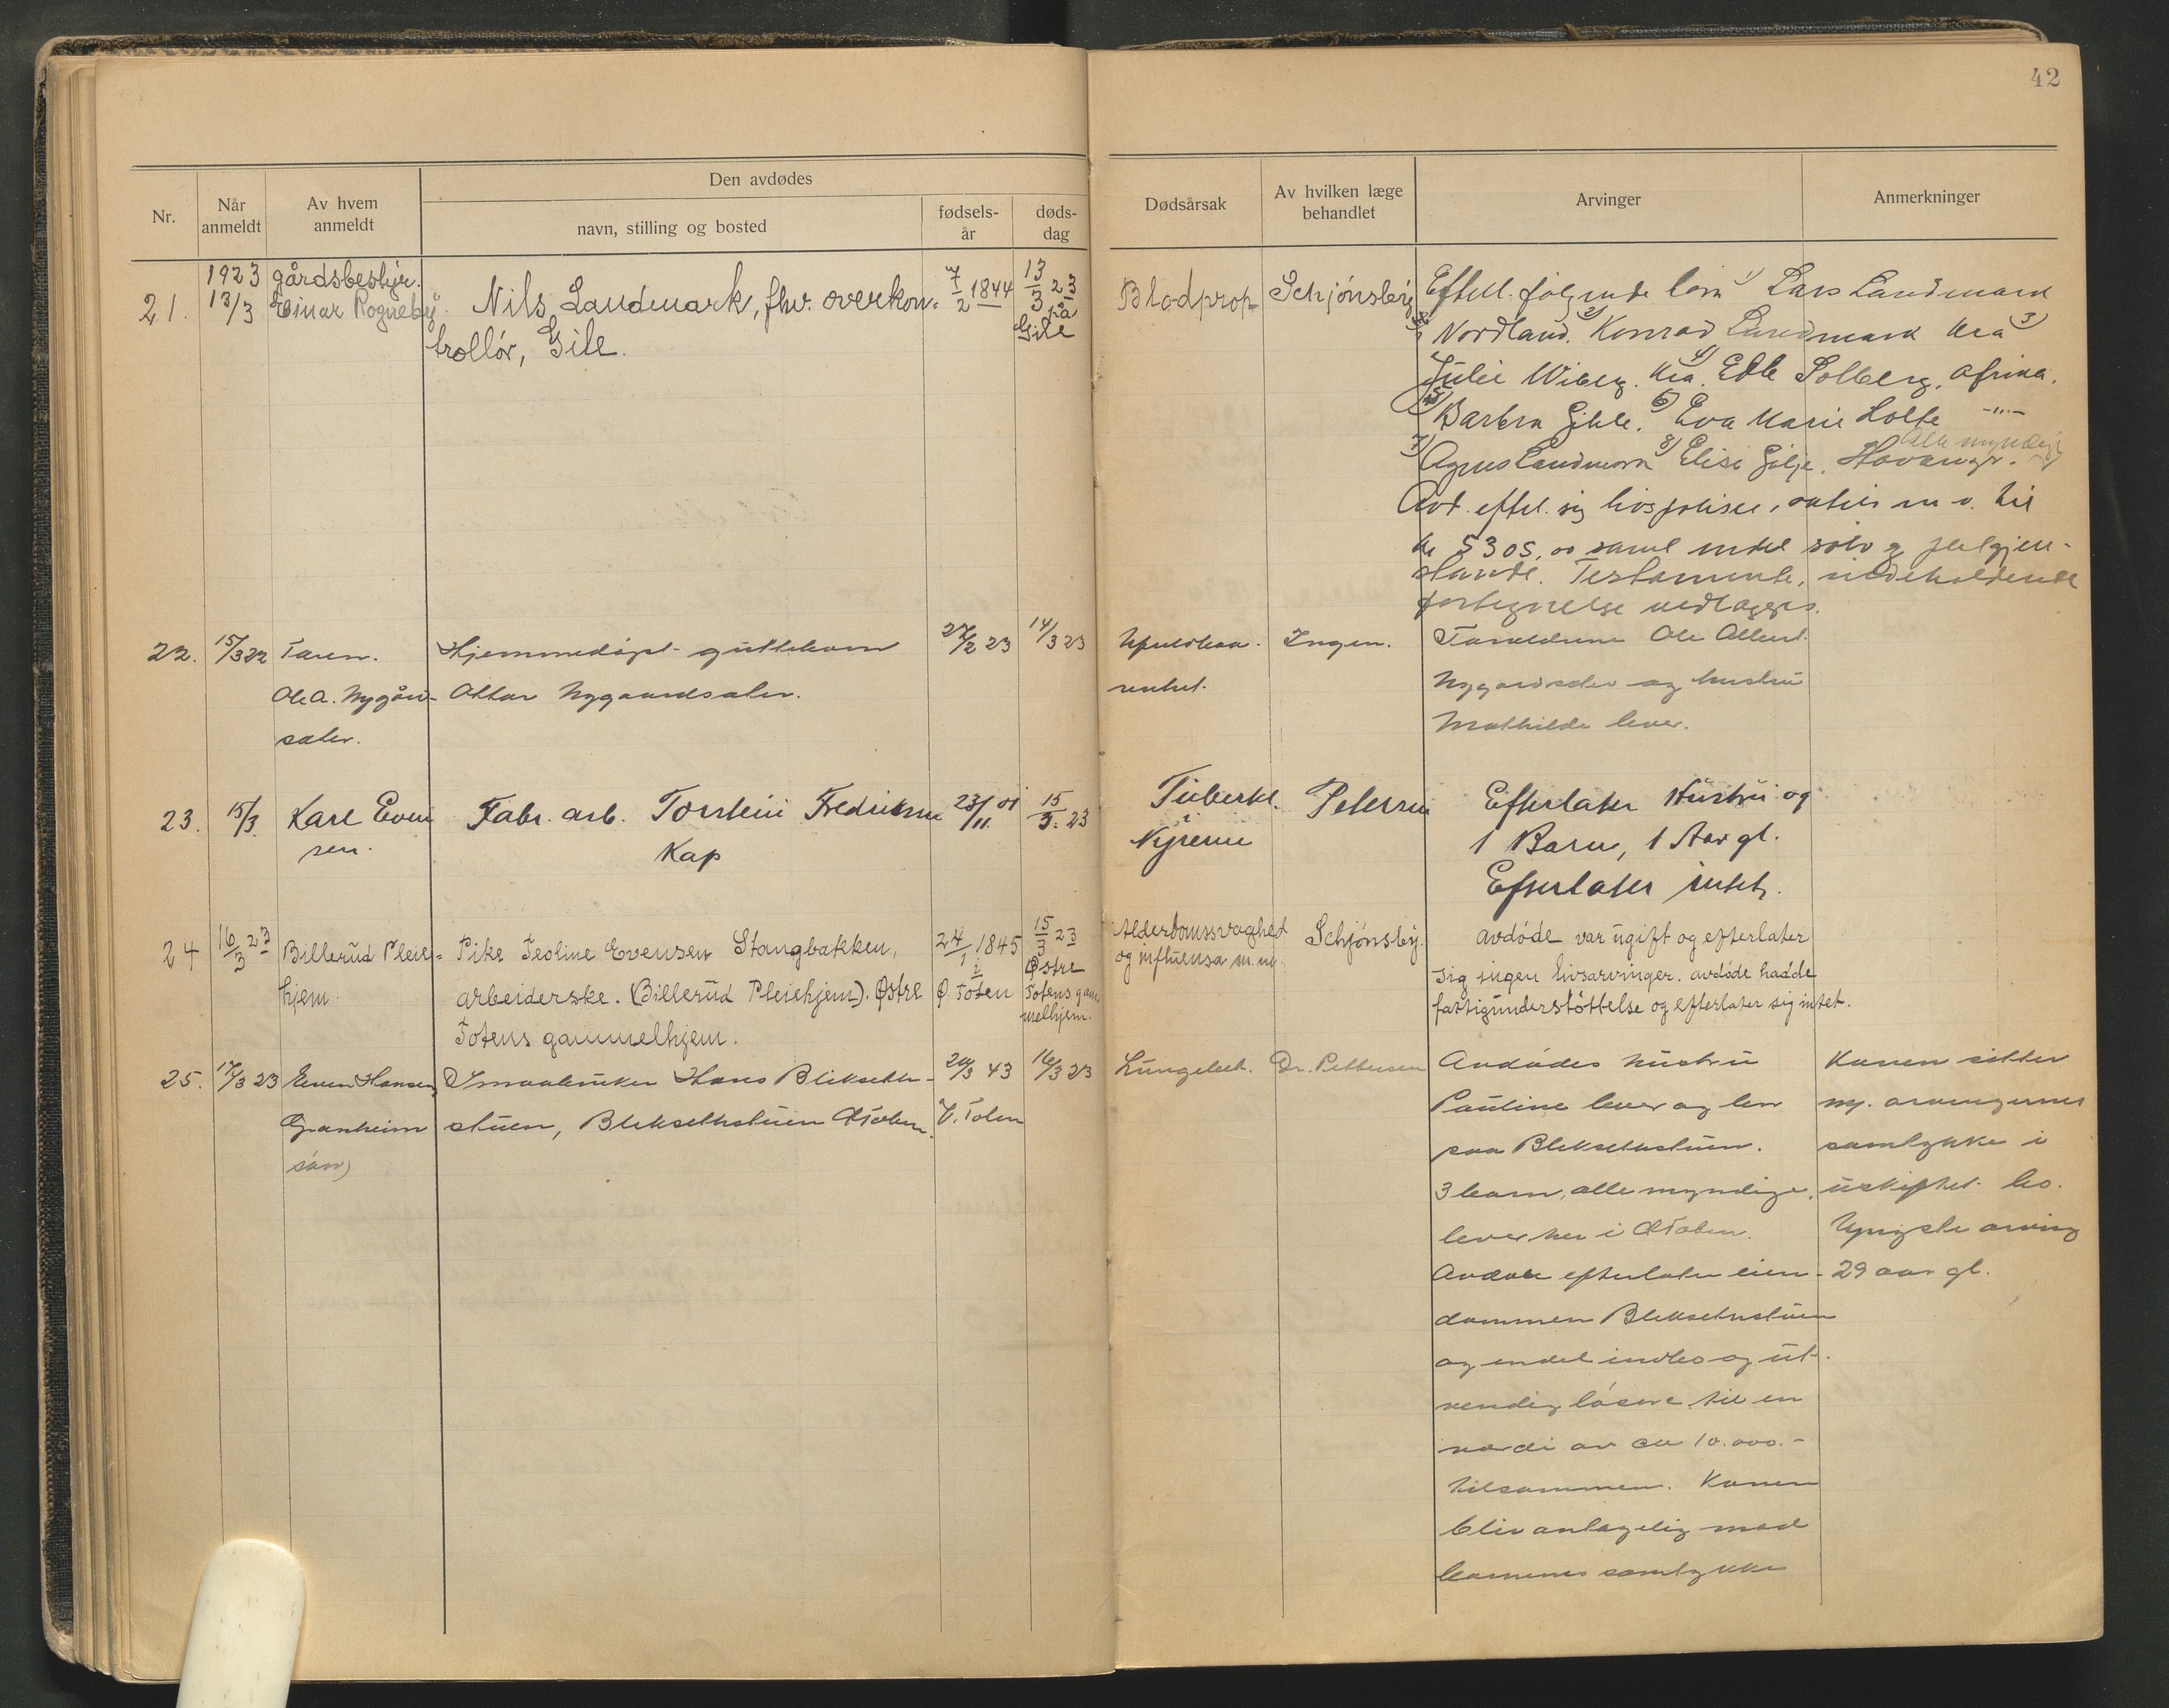 42
Den avdødes
Nr.
Når anmeldt
Av hvem anmeldt
navn, stilling og bosted
fødsels-år
døds-dag
Dødsårsak
Av hvilken læge behandlet
Arvinger
Anmerkninger
21.
1923
13/3
gårdsbestyr.
Einar Rogneby
Nils Landmark, fhv. overkon-
trollør, Gile.
7/2 1844
13/3 23
på
Gile
Blodprop
Schjønsby
Efterl. følgende barn 1) Lars Landmark
Nordland. 2) Konrad Landmark Kra 3)
Julie Wiberg. Kra. 4) Edle Solberg. Afrika.
5) Barbra Gihle. 6) Eva Marie Holte -"-
7) Agnes Landmark 8) Elise Gilje. Stavanger.
Alle myndige
Avd. efterl. sig livspoliser, aktier m v. til
kr 5305,00 samt endel sølv og
stande. Testamente, indeholdende
fortegnelse vedlægges.
22.
15/3 22
Faren.
Ole A. Nygård-
sæter.
Hjemmedøpt guttebarn
Ottar Nygaardsæter.
27/2 23
14/3 23
Upuldkaa-
renhet.
Ingen.
Forældrene Ole Albert
Nygardsæter og hustru
Mathilde lever.
23.
15/3
Karl Even
sen.
Fabr. arb. Torstein Fredriksen
Kap
23/11 01
15/3. 23
Tuberkl.
Nyrerne
Petersen
Efterlater Hustru og
1 Barn, 1 Aar gl.
Efterlater intet.
24
16/3 23
Billerud Pleie-
hjem.
Pike Teoline Evensen Stangbakken,
arbeiderske. (Billerud Pleiehjem). Østre
Totens gammelhjem.
24/1 1845
i
Ø. Toten
15/3 23
Østre
Totens gam
melhjem.
Alderdomssvaghed
og influensa m.m.
Schjønsby.
Avdøde var ugift og efterlater
sig ingen livsarvinger. avdøde hadde
fattigunderstøttelse og efterlater sig intet.
25.
17/3 23
Even Hansen
Granheim
søn)
Smaabruker Hans Blikseth-
stuen, Bleksethstuen ØToten.
20/3 43
V. Toten
16/3 23
Lungebet.
Dr. Pettersen
Avdødes hustru
Pauline lever og bor
paa Bleksethstuen.
3 barn, alle myndige,
lever her i ØToten.
Avdøde efterlater eien-
dommen Bleksethstuen
og endel indbo og ut-
vendig løsøre til en
værdi av ca 10.000.-
tilsammen. Konen
blir antagelig med
barnenes samtykke
Konen sitter
m. arvingernes
samtykke i
uskiftet bo.
Yngste arving
29 aar gl.